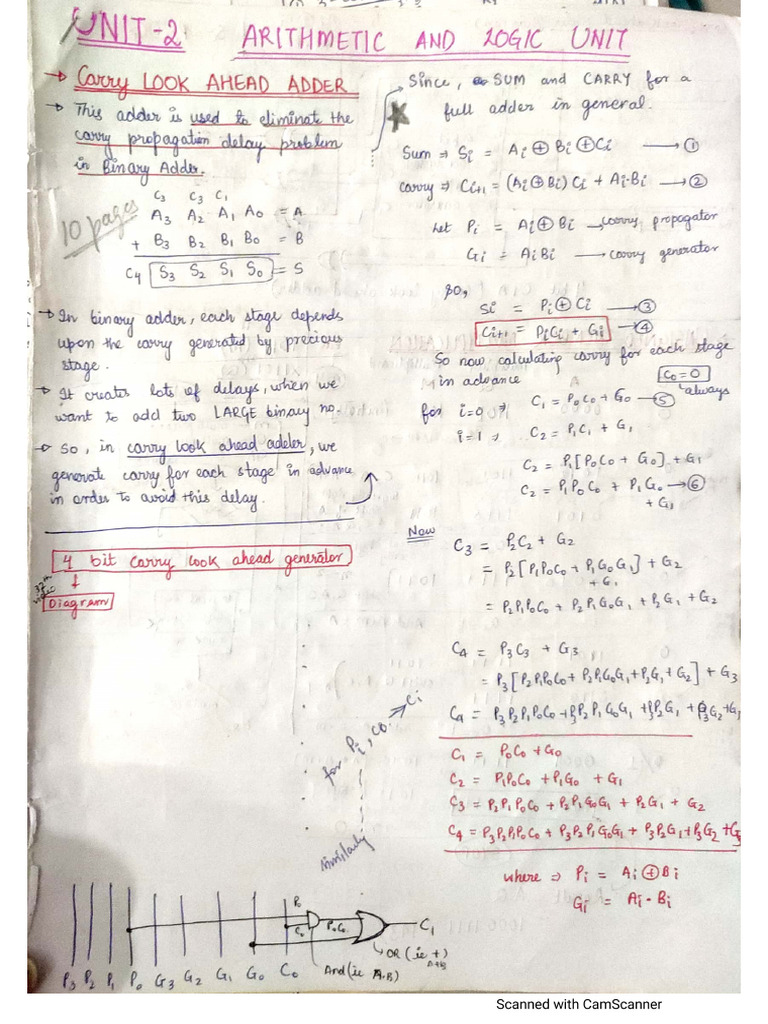 UNIT-2 ARITHMETIC AND LOGIC UNIT
→ Carry LOOK AHEAD ADDER
→ This adder is used to eliminate the
carry propagation delay problem
in Binary Adder.
C3 C3 C1
A3 A2 A1 A0 = A
+ B3 B2 B1 B0 = B
C4 S3 S2 S1 S0 = S
10 pages
→ In binary adder, each stage depends
upon the carry generated by precious
stage.
→ It creates lots of delays, when we
want to add two LARGE binary no.
→ So, in carry look ahead adder, we
generate carry for each stage in advance
in order to avoid this delay.
4 bit carry look ahead generator
↓
Diagram
Since, SUM and CARRY for a
full adder in general.
Sum ⇒ Si = Ai ⊕ Bi ⊕ Ci → ①
carry ⇒ Ci+1 = (Ai ⊕ Bi) Ci + Ai·Bi → ②
let Pi = Ai ⊕ Bi → carry propagator
Gi = AiBi → carry generator
So,
Si = Pi ⊕ Ci → ③
Ci+1 = PiCi + Gi → ④
So now calculating carry for each stage
in advance
C0=0
always
for i=0 ⇒ C1 = P0C0 + G0 → ⑤
i=1 ⇒ C2 = P1C1 + G1
C2 = P1[P0C0 + G0] + G1
C2 = P1P0C0 + P1G0 → ⑥
+ G1
Now
C3 = P2C2 + G2
= P2[P1P0C0 + P1G0G1] + G2
+ G1
= P2P1P0C0 + P2P1G0G1 + P2G1 + G2
C4 = P3C3 + G3
= P3[P2P1P0C0 + P2P1G0G1 + P2G1 + G2] + G3
C4 = P3P2P1P0C0 + P3P2P1G0G1 + P3P2G1 + P3G2 + G3
C1 = P0C0 + G0
C2 = P1P0C0 + P1G0 + G1
C3 = P2P1P0C0 + P2P1G0G1 + P2G1 + G2
C4 = P3P2P1P0C0 + P3P2P1G0G1 + P3P2G1 + P3G2 + G3
where ⇒ Pi = Ai ⊕ Bi
Gi = Ai · Bi
similarly for Pi, C0 → Ci
P0
C0
P0C0
C1
OR (ie +)
A+B
And (ie A·B)
P3 P2 P1 P0 G3 G2 G1 G0 C0
Scanned with CamScanner